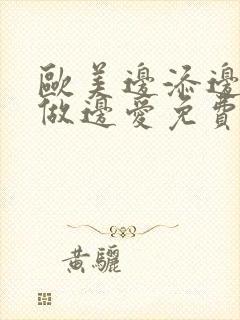 歐美邊添邊
做邊愛免費
黃驪